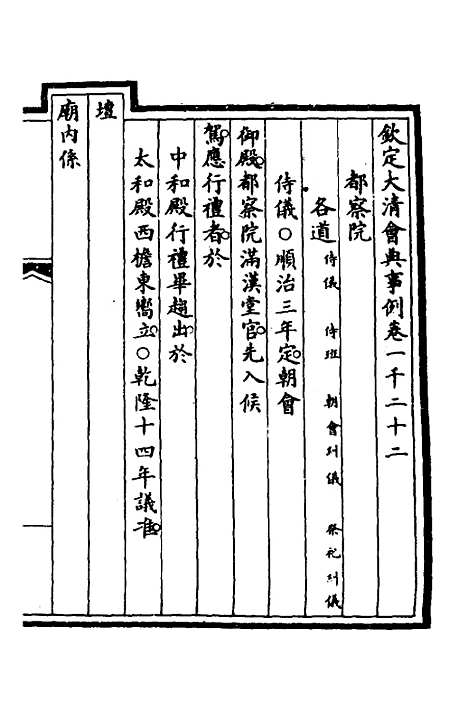 欽定大清會典事例卷一千二十二
都察院
各道 侍儀 侍班 朝會糾儀 祭祀糾儀
侍儀○順治三年定朝會
御殿都察院滿漢堂官先入候
駕應行禮者於
中和殿行禮畢趨出於
太和殿西檐東嚮立○乾隆十四年議准
壇
廟內係